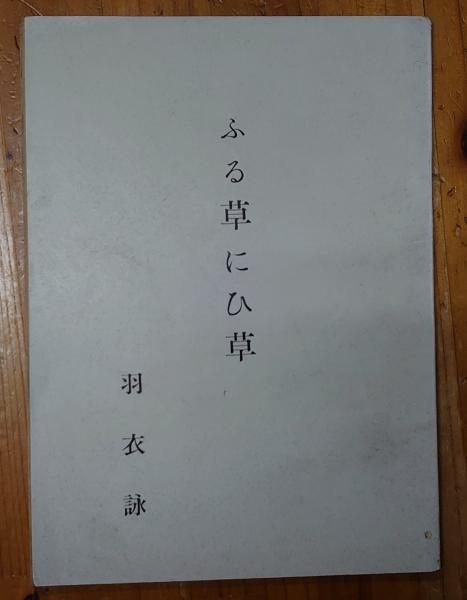 ふる草にひ草
羽衣詠